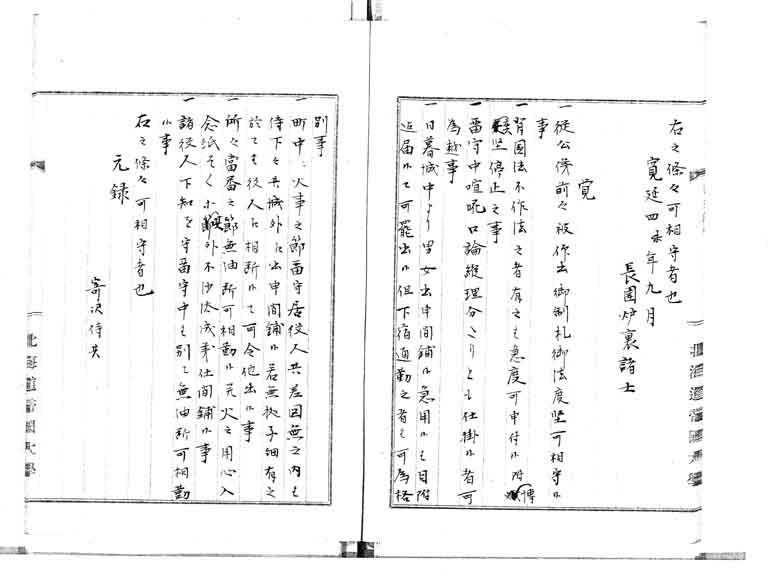 右之條々可相守者也
寛延四未年九月
長囲炉裏諸士
覚
一従公儀前々被仰出御制札御法度堅可相守候
事
一背国法不作法之者有之ハ急度可申付候附博
奕堅停止之事
一番守中喧� 口論縦理分たりとも仕掛候者可
為越事
一日暮城中より男女出申間鋪候急用候ハ目附
江届候て可罷出候但下宿通勤之者ハ可為格
別事
一町中ニ火事之節番守居役人共差図無之内ハ
侍下々共城外江出申間鋪候若無拠子細有之
於てハ役人江相断候て可令他出候事
一所々當番之節無油断可相勤候尤火之用心入
念紙そく小 外不沙汰成事仕間鋪候事
一諸役人下知を守番守中ハ別て無油断可相勤
候事
右之條々可相守者也
元録
寄沢侍共
北海道帝国大學
北海道帝国大學